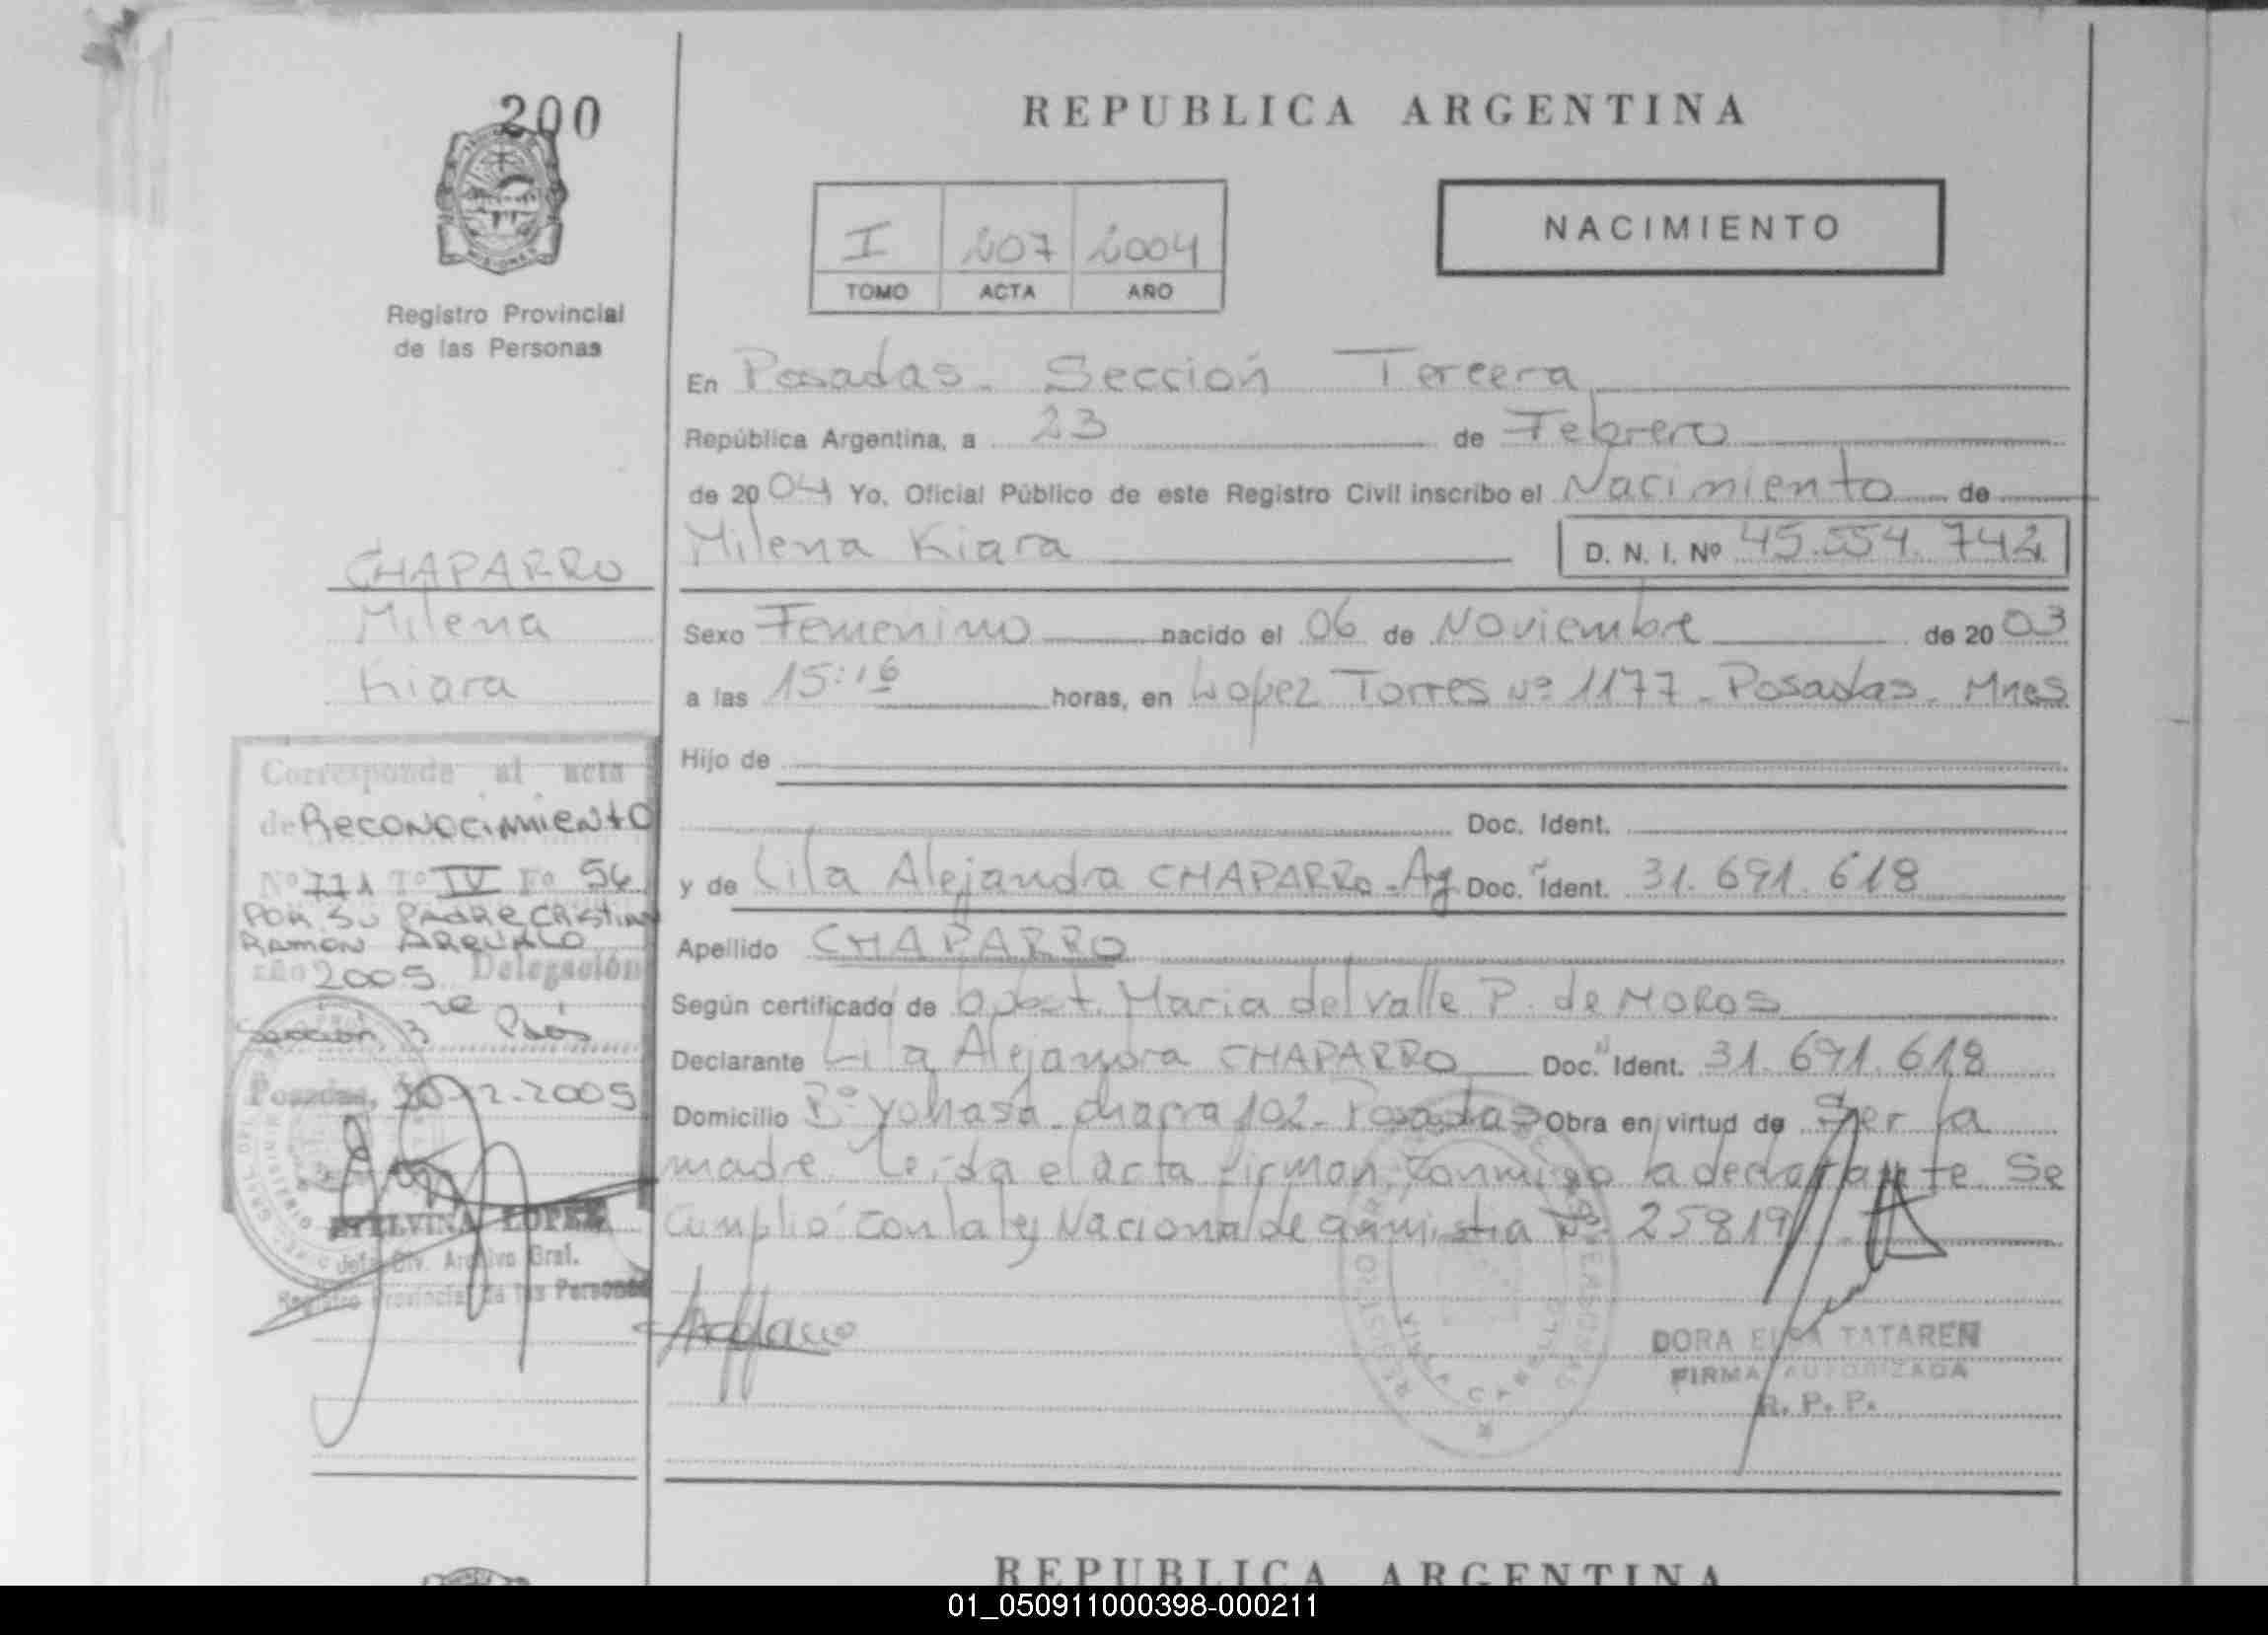 200
REPUBLICA ARGENTINA
NACIMIENTO
I 207 2004
TOMO ACTA AÑO
Registro Provincial
de las Personas
En Posadas. Sección Tercera
República Argentina, a 23 de Febrero
de 2004 Yo, Oficial Público de este Registro Civil inscribo el Nacimiento de
Milena Kiara D. N. I. Nº 45.554.742
CHAPARRO
Milena
Kiara
Sexo Femenino nacido el 06 de Noviembre de 2003
a las 15:16 horas, en Lopez Torres Nº 1177 - Posadas - Mnes
Hijo de
Doc. Ident.
y de Lila Alejandra CHAPARRO - Ag Doc. Ident. 31.691.618
Apellido CHAPARRO
Según certificado de Obst. Maria del Valle P. de MOROS
Declarante Lila Alejandra CHAPARRO Doc. Ident. 31.691.618
Domicilio Bº Yohasa - chacra 102 - Posadas Obra en virtud de Ser la
madre. Leída el acta firman conmigo la declarante. Se
Cumplió con la ley Nacional de amnistia Nº 25819
Corresponde al acta
de Reconocimiento
Nº 771 Tº IV Fº 56
POR SU PADRE CRISTIAN
RAMON
año 2005 Delegación
Sección 3
Posadas, 2005
LOPEZ
Jefa Div. Archivo Gral.
Registro Provincial de las Personas
DORA ELSA TATAREN
FIRMA AUTORIZADA
R. P. P.
REPUBLICA ARGENTINA
01_050911000398-000211